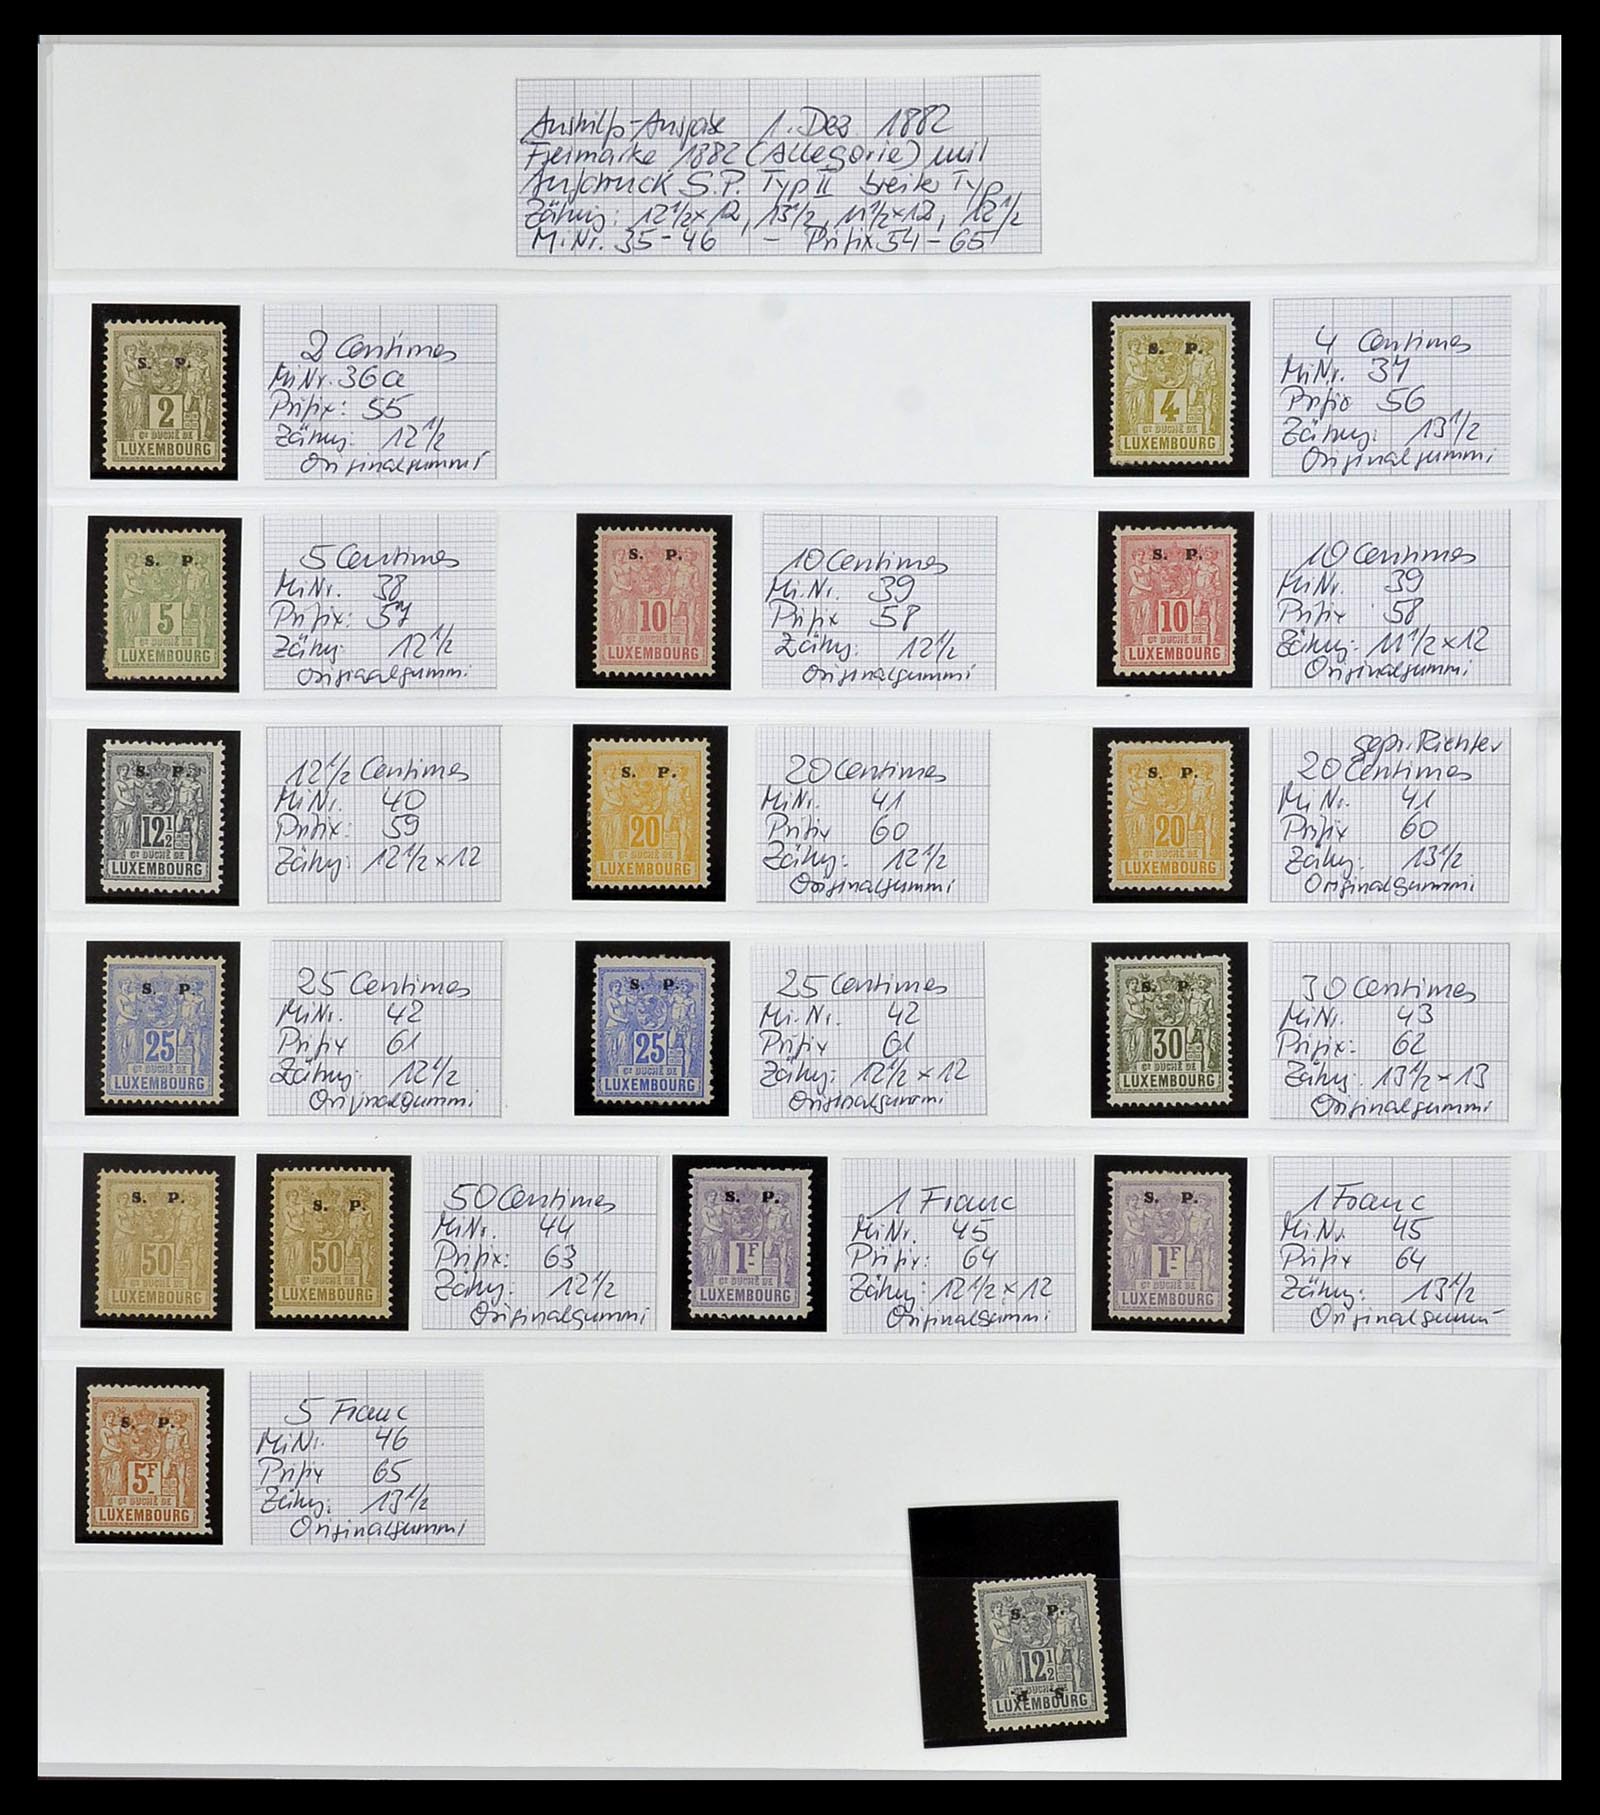 Aushilfs-Ausgabe 1. Dez. 1882
Freimarke 1882 (Allegorie) mit
Aufdruck S.P. Typ II breiter Typ
Zähng: 12½x12, 13½, 11½x12, 12½
Mi.Nr. 35-46 - Prifix 54-65
S. P.
2
Gᴰ DUCHÉ DE
LUXEMBOURG
2 Centimes
MiNr. 36a
Prifix: 55
Zähng: 12½
Originalgummi
S. P.
4
Gᴰ DUCHÉ DE
LUXEMBOURG
4 Centimes
MiNr. 37
Prifix 56
Zähng: 13½
Originalgummi
S. P.
5
Gᴰ DUCHÉ DE
LUXEMBOURG
5 Centimes
MiNr. 38
Prifix: 57
Zähng: 12½
Originalgummi
S. P.
10
Gᴰ DUCHÉ DE
LUXEMBOURG
10 Centimes
Mi.Nr. 39
Prifix 58
Zähng: 12½
Originalgummi
S. P.
10
Gᴰ DUCHÉ DE
LUXEMBOURG
10 Centimes
MiNr. 39
Prifix 58
Zähng: 11½x12
Originalgummi
S. P.
12½
Gᴰ DUCHÉ DE
LUXEMBOURG
12½ Centimes
MiNr. 40
Prifix: 59
Zähng: 12½x12
S. P.
20
Gᴰ DUCHÉ DE
LUXEMBOURG
20 Centimes
MiNr. 41
Prifix 60
Zähng: 12½
Originalgummi
S. P.
20
Gᴰ DUCHÉ DE
LUXEMBOURG
gepr. Richter
20 Centimes
MiNr. 41
Prifix 60
Zähng: 13½
Originalgummi
S. P.
25
Gᴰ DUCHÉ DE
LUXEMBOURG
25 Centimes
MiNr. 42
Prifix 61
Zähng: 12½
Originalgummi
S. P.
25
Gᴰ DUCHÉ DE
LUXEMBOURG
25 Centimes
Mi.Nr. 42
Prifix 61
Zähng: 12½x12
Originalgummi
S. P.
30
Gᴰ DUCHÉ DE
LUXEMBOURG
30 Centimes
MiNr. 43
Prifix: 62
Zähng: 13½x13
Originalgummi
S. P.
50
Gᴰ DUCHÉ DE
LUXEMBOURG
S. P.
50
Gᴰ DUCHÉ DE
LUXEMBOURG
50 Centimes
MiNr. 44
Prifix: 63
Zähng: 12½
Originalgummi
S. P.
1F
Gᴰ DUCHÉ DE
LUXEMBOURG
1 Franc
MiNr. 45
Prifix: 64
Zähng: 12½x12
Originalgummi
S. P.
1F
Gᴰ DUCHÉ DE
LUXEMBOURG
1 Franc
Mi.Nr. 45
Prifix 64
Zähng: 13½
Originalgummi
S. P.
5F
Gᴰ DUCHÉ DE
LUXEMBOURG
5 Franc
MiNr. 46
Prifix 65
Zähng: 13½
Originalgummi
S. P.
12½
Gᴰ DUCHÉ DE
LUXEMBOURG
S. P.